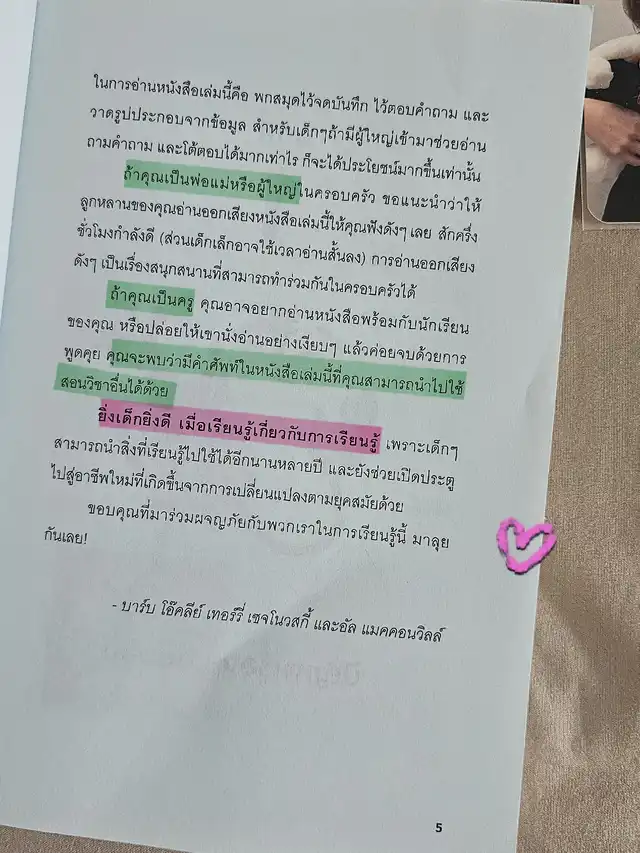 ในการอ่านหนังสือเล่มนี้คือ พกสมุดไว้จดบันทึก ไว้ตอบคำถาม และ
วาดรูปประกอบจากข้อมูล สำหรับเด็กๆถ้ามีผู้ใหญ่เข้ามาช่วยอ่าน
ถามคำถาม และโต้ตอบได้มากเท่าไร ก็จะได้ประโยชน์มากขึ้นเท่านั้น
ถ้าคุณเป็นพ่อแม่หรือผู้ใหญ่ในครอบครัว ขอแนะนำว่าให้
ลูกหลานของคุณอ่านออกเสียงหนังสือเล่มนี้ให้คุณฟังดังๆ เลย สักครึ่ง
ชั่วโมงกำลังดี (ส่วนเด็กเล็กอาจใช้เวลาอ่านสั้นลง) การอ่านออกเสียง
ดังๆ เป็นเรื่องสนุกสนานที่สามารถทำร่วมกันในครอบครัวได้
ถ้าคุณเป็นครู คุณอาจอยากอ่านหนังสือพร้อมกับนักเรียน
ของคุณ หรือปล่อยให้เขานั่งอ่านอย่างเงียบๆ แล้วค่อยจบด้วยการ
พูดคุย คุณจะพบว่ามีคำศัพท์ในหนังสือเล่มนี้ที่คุณสามารถนำไปใช้
สอนวิชาอื่นได้ด้วย
ยิ่งเด็กยิ่งดี เมื่อเรียนรู้เกี่ยวกับการเรียนรู้ เพราะเด็กๆ
สามารถนำสิ่งที่เรียนรู้ไปใช้ได้อีกนานหลายปี และยังช่วยเปิดประตู
ไปสู่อาชีพใหม่ที่เกิดขึ้นจากการเปลี่ยนแปลงตามยุคสมัยด้วย
ขอบคุณที่มาร่วมผจญภัยกับพวกเราในการเรียนรู้นี้ มาลุย
กันเลย!
- บาร์บ โอ๊คลีย์ เทอร์รี่ เซจโนวสกี้ และอัล แมคคอนวิลล์
5